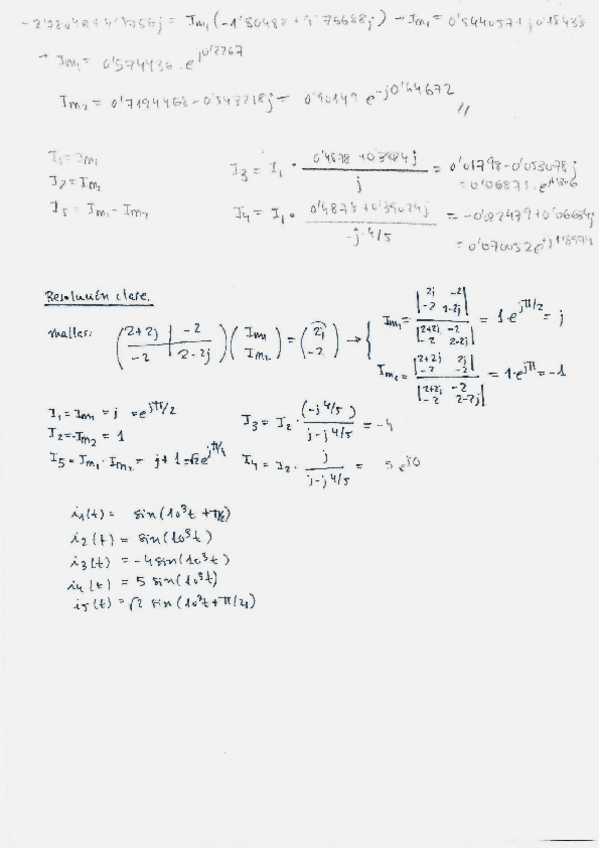 -2'78048+4'17756j = Im₁(-1'80488+9'75688j) → Im₁ = 0'544057+j0'18438
→ Im₁ = 0'574436·e^j0'3267
Im₂ = 0'719446-0'543218j = 0'90149 e^-j0'64672 //
I₁=Im₁
I₂=Im₂
I₅ = Im₁-Im₂
I₃ = I₁ · (0'4878+0'39024j)/j = 0'01798-0'053078j
I₄ = I₁ · (0'4878+0'39024j)/(-j·4/5) = -0'022479+0'06684j
= 0'070052e^j1'8974
Resolución clase.
mallas: (2+2j -2 / -2 2-2j) (Im₁ / Im₂) = (2j / -2) →
Im₁ = |2j -2 / -2 2-2j| / |2+2j -2 / -2 2-2j| = 1·e^jπ/2 = j
Im₂ = |2+2j 2j / -2 -2| / |2+2j -2 / -2 2-2j| = 1·e^jπ = -1
I₁=Im₁ = j = e^jπ/2
I₂=-Im₂ = 1
I₅ = Im₁-Im₂ = j+1=√2e^jπ/4
I₃ = I₂ · (-j4/5)/(j-j4/5) = -4
I₄ = I₂ · j/(j-j4/5) = 5 e^j0
i₁(t) = sin(10³t+π/2)
i₂(t) = sin(10³t)
i₃(t) = -4sin(10³t)
i₄(t) = 5 sin(10³t)
i₅(t) = √2 sin(10³t+π/4)